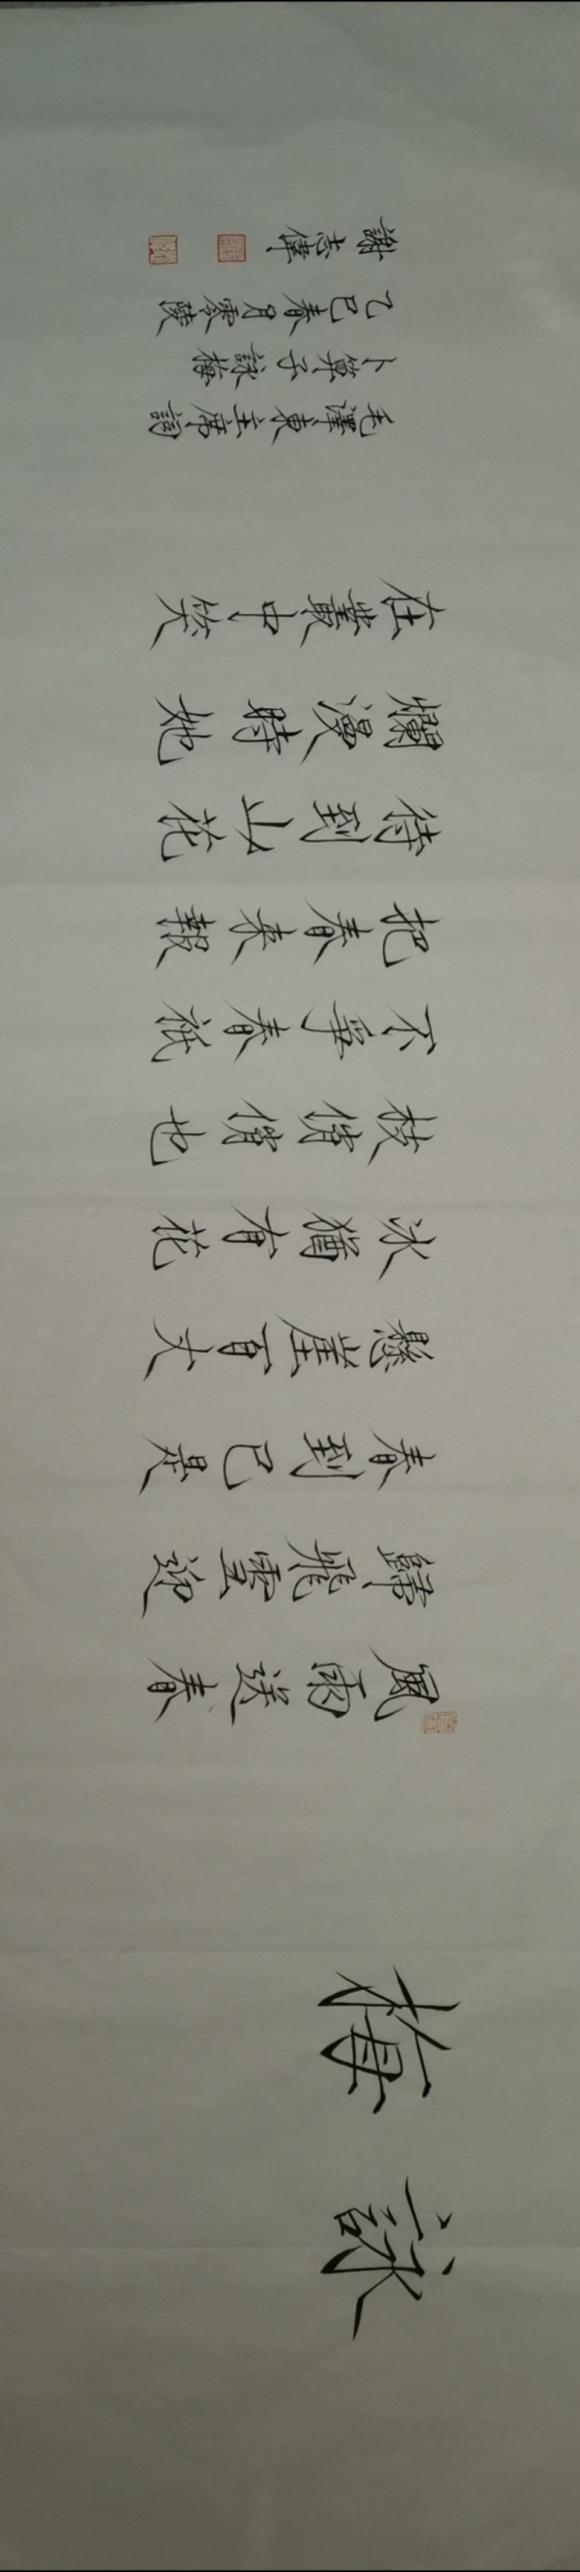 詠梅
風雨送春
歸飛雪迎
春到已是
懸崖百丈
冰猶有花
枝俏俏也
不爭春祇
把春来報
待到山花
爛漫時她
在叢中笑
毛澤東主席詞
卜算子詠梅
乙巳春月零陵
謝志偉